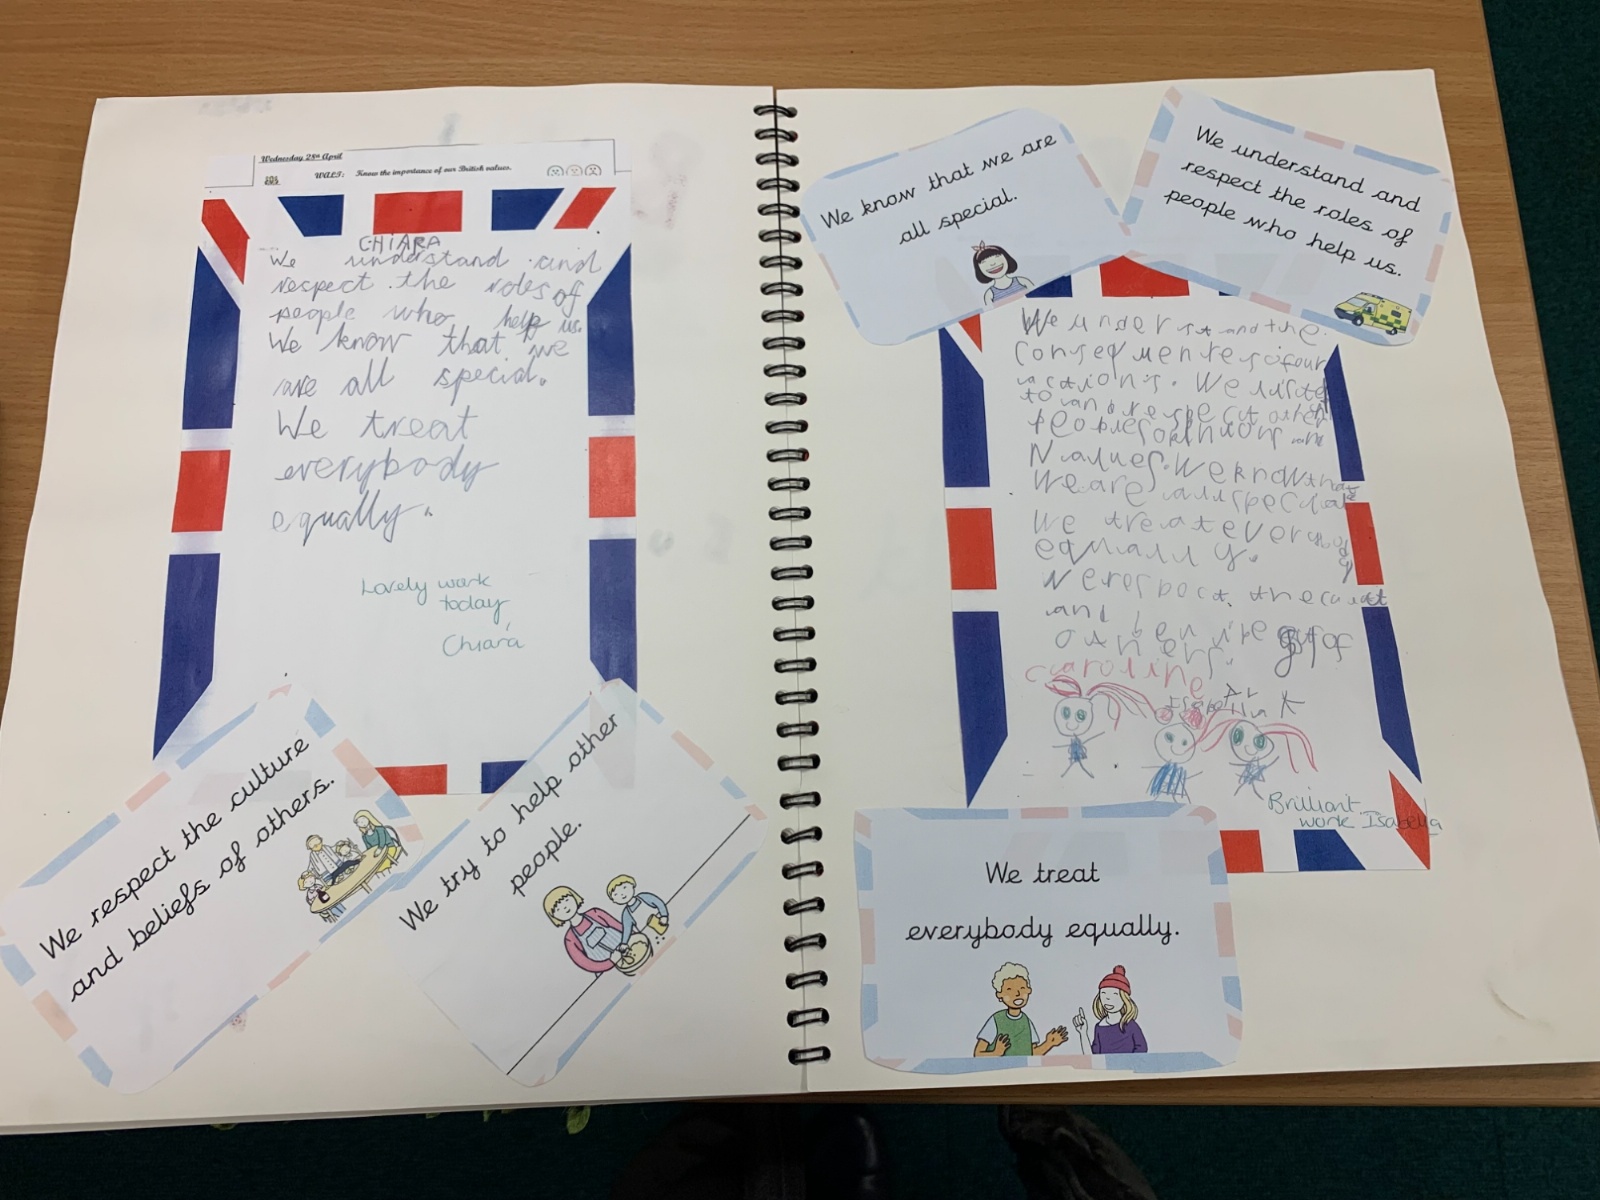 Wednesday 28th April
WALT: Know the importance of our British values.
CHiARA
We understand and
respect the roles of
people who help us.
We know that we
are all special.
We treat
everybody
equally.
Lovely work
today
Chiara
We respect the culture
and beliefs of others.
We try to help other
people.
We know that we are
all special.
We understand and
respect the roles of
people who help us.
We understand the
of our
actions. We
to and respect other
peoples
values. We know that
We are all special
We treat everybody
equally.
We respect the
and
others.
caroline
Isabella
K
Brilliant
work Isabella
We treat
everybody equally.